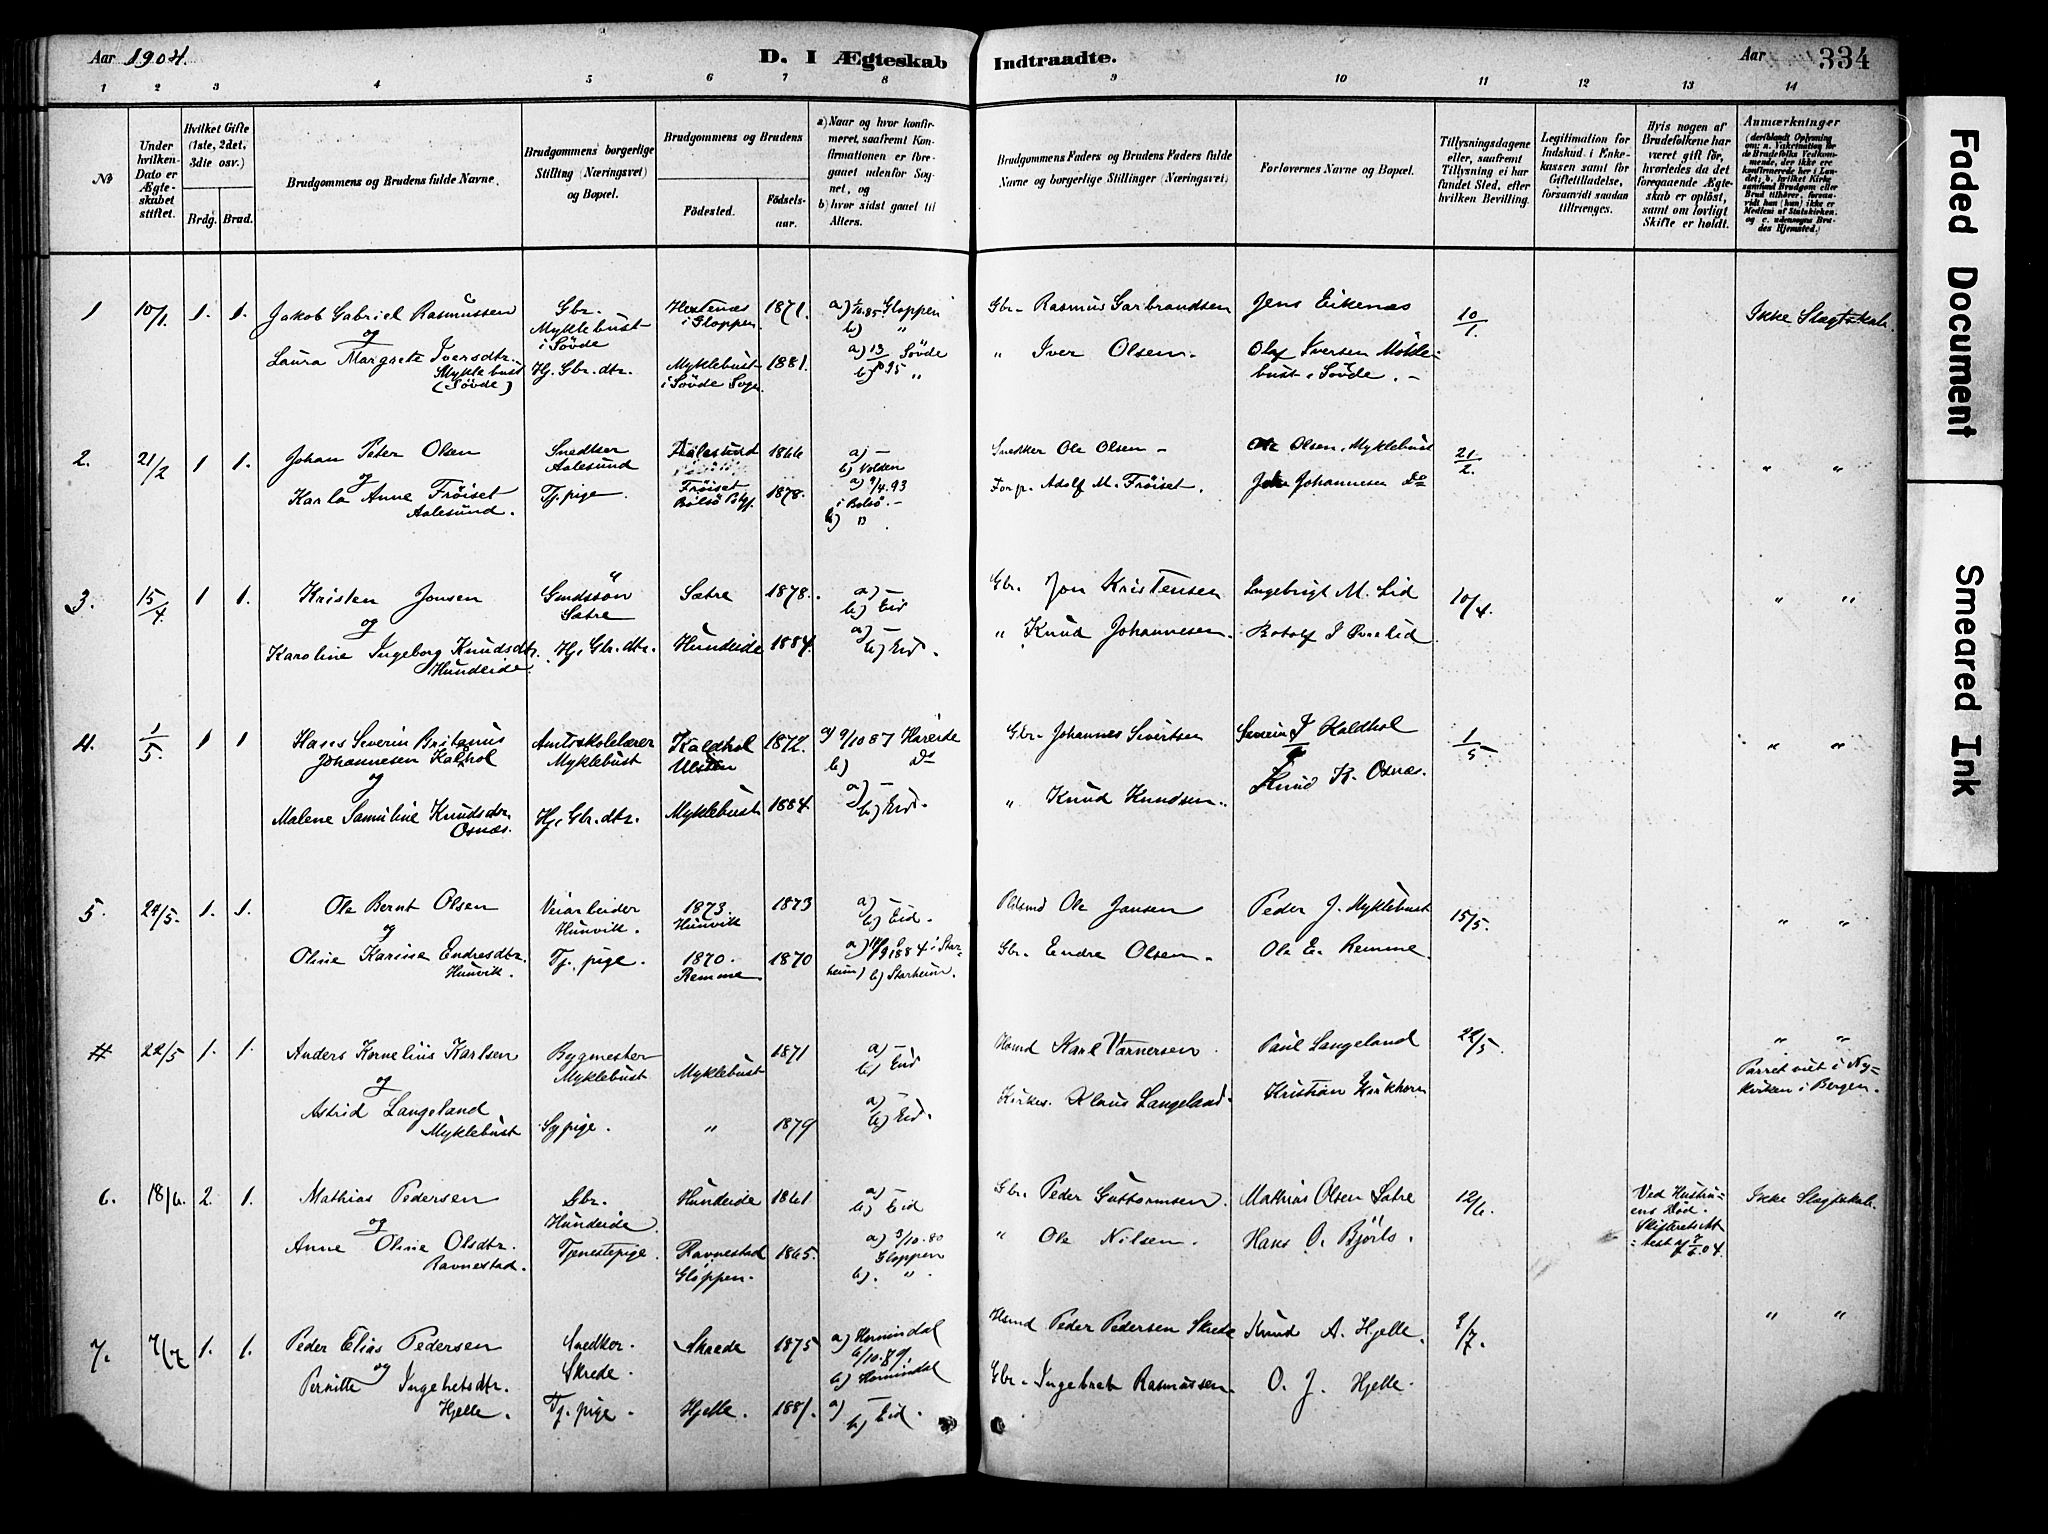 Aar 1904.
D. I Ægteskab Indtraadte.
Aar
334
1 2 3 4 5 6 7 8 9 10 11 12 13 14
No
Under hvilken Dato er Ægteskabet stiftet.
Hvilket Gifte (1ste, 2det, 3die osv.)
Brdg. Brud.
Brudgommens og Brudens fulde Navne.
Brudgommens borgerlige Stilling (Næringsvei) og Bopæl.
Brudgommens og Brudens
Födested. Födselsaar.
a) Naar og hvor konfirmeret, saafremt Konfirmationen er foregaaet udenfor Sognet, og
b) hvor sidst gaaet til Alters.
Brudgommens Faders og Brudens Faders fulde Navne og borgerlige Stillinger (Næringsvei)
Forlovernes Navne og Bopæl.
Tillysningsdagene eller, saafremt Tillysning ei har fundet Sted, efter hvilken Bevilling.
Legitimation for Indskud i Enkekassen samt for Giftetilladelse, forsaavidt saadan tiltrænges.
Hvis nogen af Brudefolkene har været gift för, hvorledes da det foregaaende Ægteskab er oplöst, samt om lovligt Skifte er holdt.
Anmærkninger
(deriblandt Oplysning om: a. Vakcination for de Brudefolks Vedkommende, der ikke ere konfirmerede her i Landet; b. hvilket Kirkesamfund Brudgom eller Brud tilhörer, forsaavidt han (hun) ikke er Medlem af Statskirken, og c. udensogns Brudes Hjemsted.)
1 10/1. 1. 1. Jakob Gabriel Rasmussen Gbr. Myklebust i Sövde Hestenæs i Gloppen 1871. a) Gloppen b) " Gbr. Rasmus Garbrandsen Jens Eikenæs 10/1. Ikke Slægtskab.
og
Laura Margrete Iversdtr. Myklebust (Sövde) Hj. Gbr. dtr. Myklebust i Sövde Sogn 1881. a) 13/10 95 Sövde b) " " Iver Olsen. Olaf Iversen Myklebust i Sövde.
2. 21/2 1 1. Johan Peter Olsen Snedker Aalesund Aalesund 1866 a) — b) Volden Snedker Ole Olsen — Ole Olsen, Myklebust 21/2. " "
og
Karla Anne Fröiset Aalesund. Tj. pige. Fröiset Bolsö 1878. a) 9/4.93 i Bolsö. b) " Forp. Adolf M. Fröiset. Johannesen Do
3. 15/4 1 1. Kristen Jonsen Gmdssön Sætre Sætre 1878. a) — b) Eid Gbr. Jon Kristensen Ingebrigt M. Lid 10/4. " "
og
Karoline Ingeborg Knudsdtr. Hundeide. Hj. Gbr. dtr. Hundeide 1884. a) — b) Eid. " Knud Johannesen. Botolf J Överlid
4. 1/5. 1 1 Hans Severin Johannesen Kaldhol Amtsskolelærer Myklebust Kaldhol Ulsten 1872. a) 9/10 87 Hareide b) Do Gbr. Johannes Sivertsen Severin J Kaldhol 1/5 " "
og
Malene Samuline Knudsdtr. Osnæs. Hj. Gbr. dtr. Myklebust 1884. a) — b) Eid. " Knud Knudsen. Knud K. Osnæs.
5. 24/5. 1. 1. Ole Bernt Olsen Veiarbeider Hunvik. 1873. Hunvik 1873 a) — b) Eid. Ole Jansen Peder J. Myklebust 15/5. " "
og
Oline Karine Endresdtr. Hunvik. Tj. pige. 1870. Remme 1870 a) 1884 i Starheim b) Starheim. Gbr. Endre Olsen. Ole E. Remme
# 22/5 1. 1. Anders Kornelius Karlsen Bygmester Myklebust Myklebust 1871 a) — b) Eid Hsmd Karl Varnersen. Paul Langeland 22/5. " " Parret viet i Nykirken i Bergen.
og
Astrid Langeland Myklebust Sypige. " 1879 a) — b) Eid. Kirkes. Klaus Langeland. Kristian Kirkhorn
6. 18/6. 2. 1. Mathias Pedersen Gbr. Hundeide. Hundeide 1861 a) — b) Eid Gbr. Peder Guttormsen. Mathias Olsen Sætre 12/6. Ved Hustruens Död. Skifterets Attest af 7/6.04. Ikke Slægtskab.
og
Anne Oline Olsdtr. Ravnestad. Tjenestepige. Ravnestad Gloppen. 1865. a) 3/10.80 Gloppen b). " " Ole Nilsen. Hans O. Björlo.
7. 7/7 1. 1. Peder Elias Pedersen Snedker. Skrede. Skrede 1875 a) Hornindal 6/10.89. b) Hornindal Hsmd Peder Pedersen Skrede Knud A. Hjelle. 3/7. " "
og
Pernille Ingebretsdtr. Hjelle. Tj. pige. Hjelle. 1881. a) — b) Eid. Gbr. Ingebret Rasmussen. O. J. Hjelle.
Faded Document
Smeared Ink